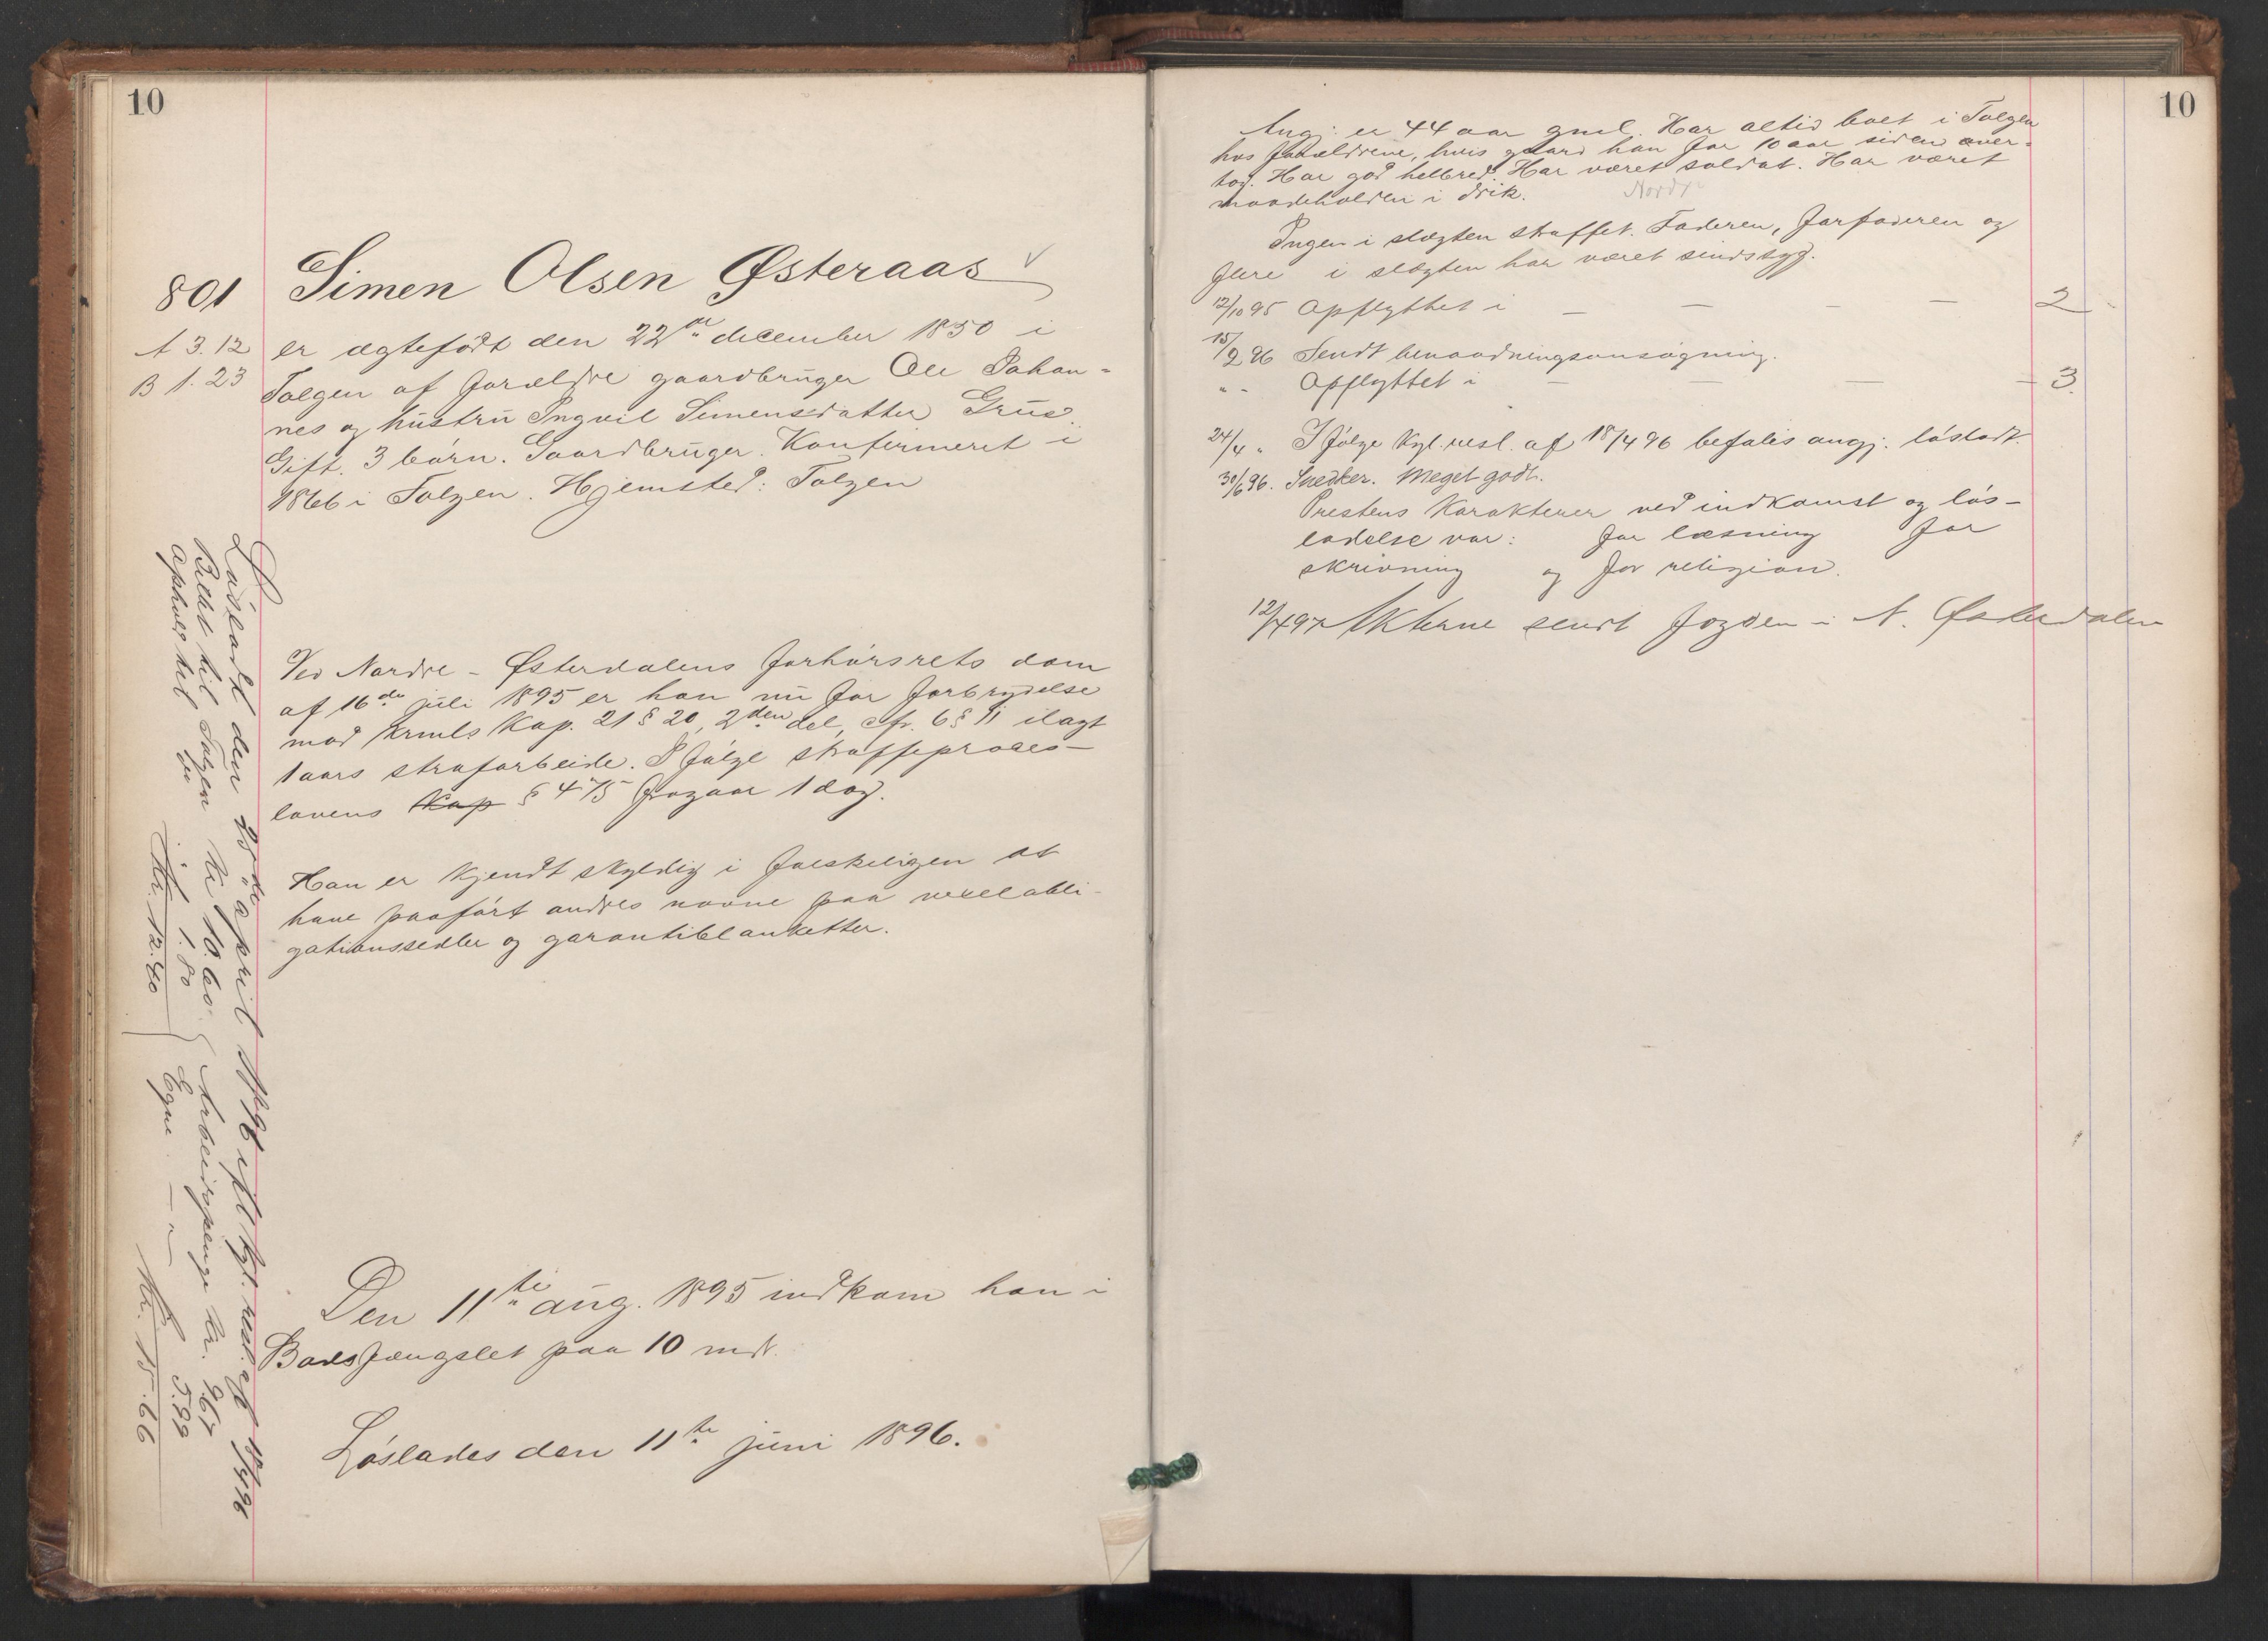 10
801
Simen Olsen Østeraas
A 3.12
B 1.23
er ægtefødt den 22de december 1850 i
Tolgen af forældre gaardbruger Ole Johan-
nes og hustru Ingvil Simensdatter Grue.
Gift. 3 børn. Gaardbruger. Konfirmeret i
1866 i Tolgen. Hjemsted: Tolgen
Ved Nordre-Østerdalens forhørsrets dom
af 16de juli 1895 er han nu for forbrydelse
mod krmls Kap. 21 § 20, 2den del, cfr. 6 § 11 ilagt
1 aars strafarbeide. I følge straffeproces-
lovens Kap § 475 fragaar 1 dag.
Han er kjendt skyldig i falskeligen at
have paaført andres navne paa vexelobli-
gationssedler og garantiblanketter.
Den 11te aug. 1895 indkom han i
Bodsfængslet paa 10 mdr.
Løslades den 11te juni 1896.
Løsladt den 25de april 1896 ifl kgl. resl. af 18/4 96
Billet til Tolgen kr 10.60
Ophold til do " 1.80
Kr. 12.40
Arbeidspenge kr. 9.67
Egne — " — 5.99
Kr. 15.66
10
Angj. er 44 aar gml. Har altid boet i Tolgen
hos forældrene, hvis gaard han for 10 aar siden over-
tog. Har god helbred. Har været soldat. Har været
maadeholden i drik.
Nordr
Ingen i slægten straffet. Faderen, farfaderen og
flere i slægten har været sindssyg.
12/10 95 Opflyttet i — — — — 2
15/2 96 Sendt benaadningsansøgning.
" - Opflyttet i — — — — 3.
24/4 " I følge kgl. resl. af 18/4 96 befales angj. løsladt.
30/6 96. Snedker. Meget godt.
Prestens karakterer ved indkomst og løs-
ladelse var: for læsning for
skrivning og for religion.
12/4 97 Akterne sendt fogden i N. Østerdalen